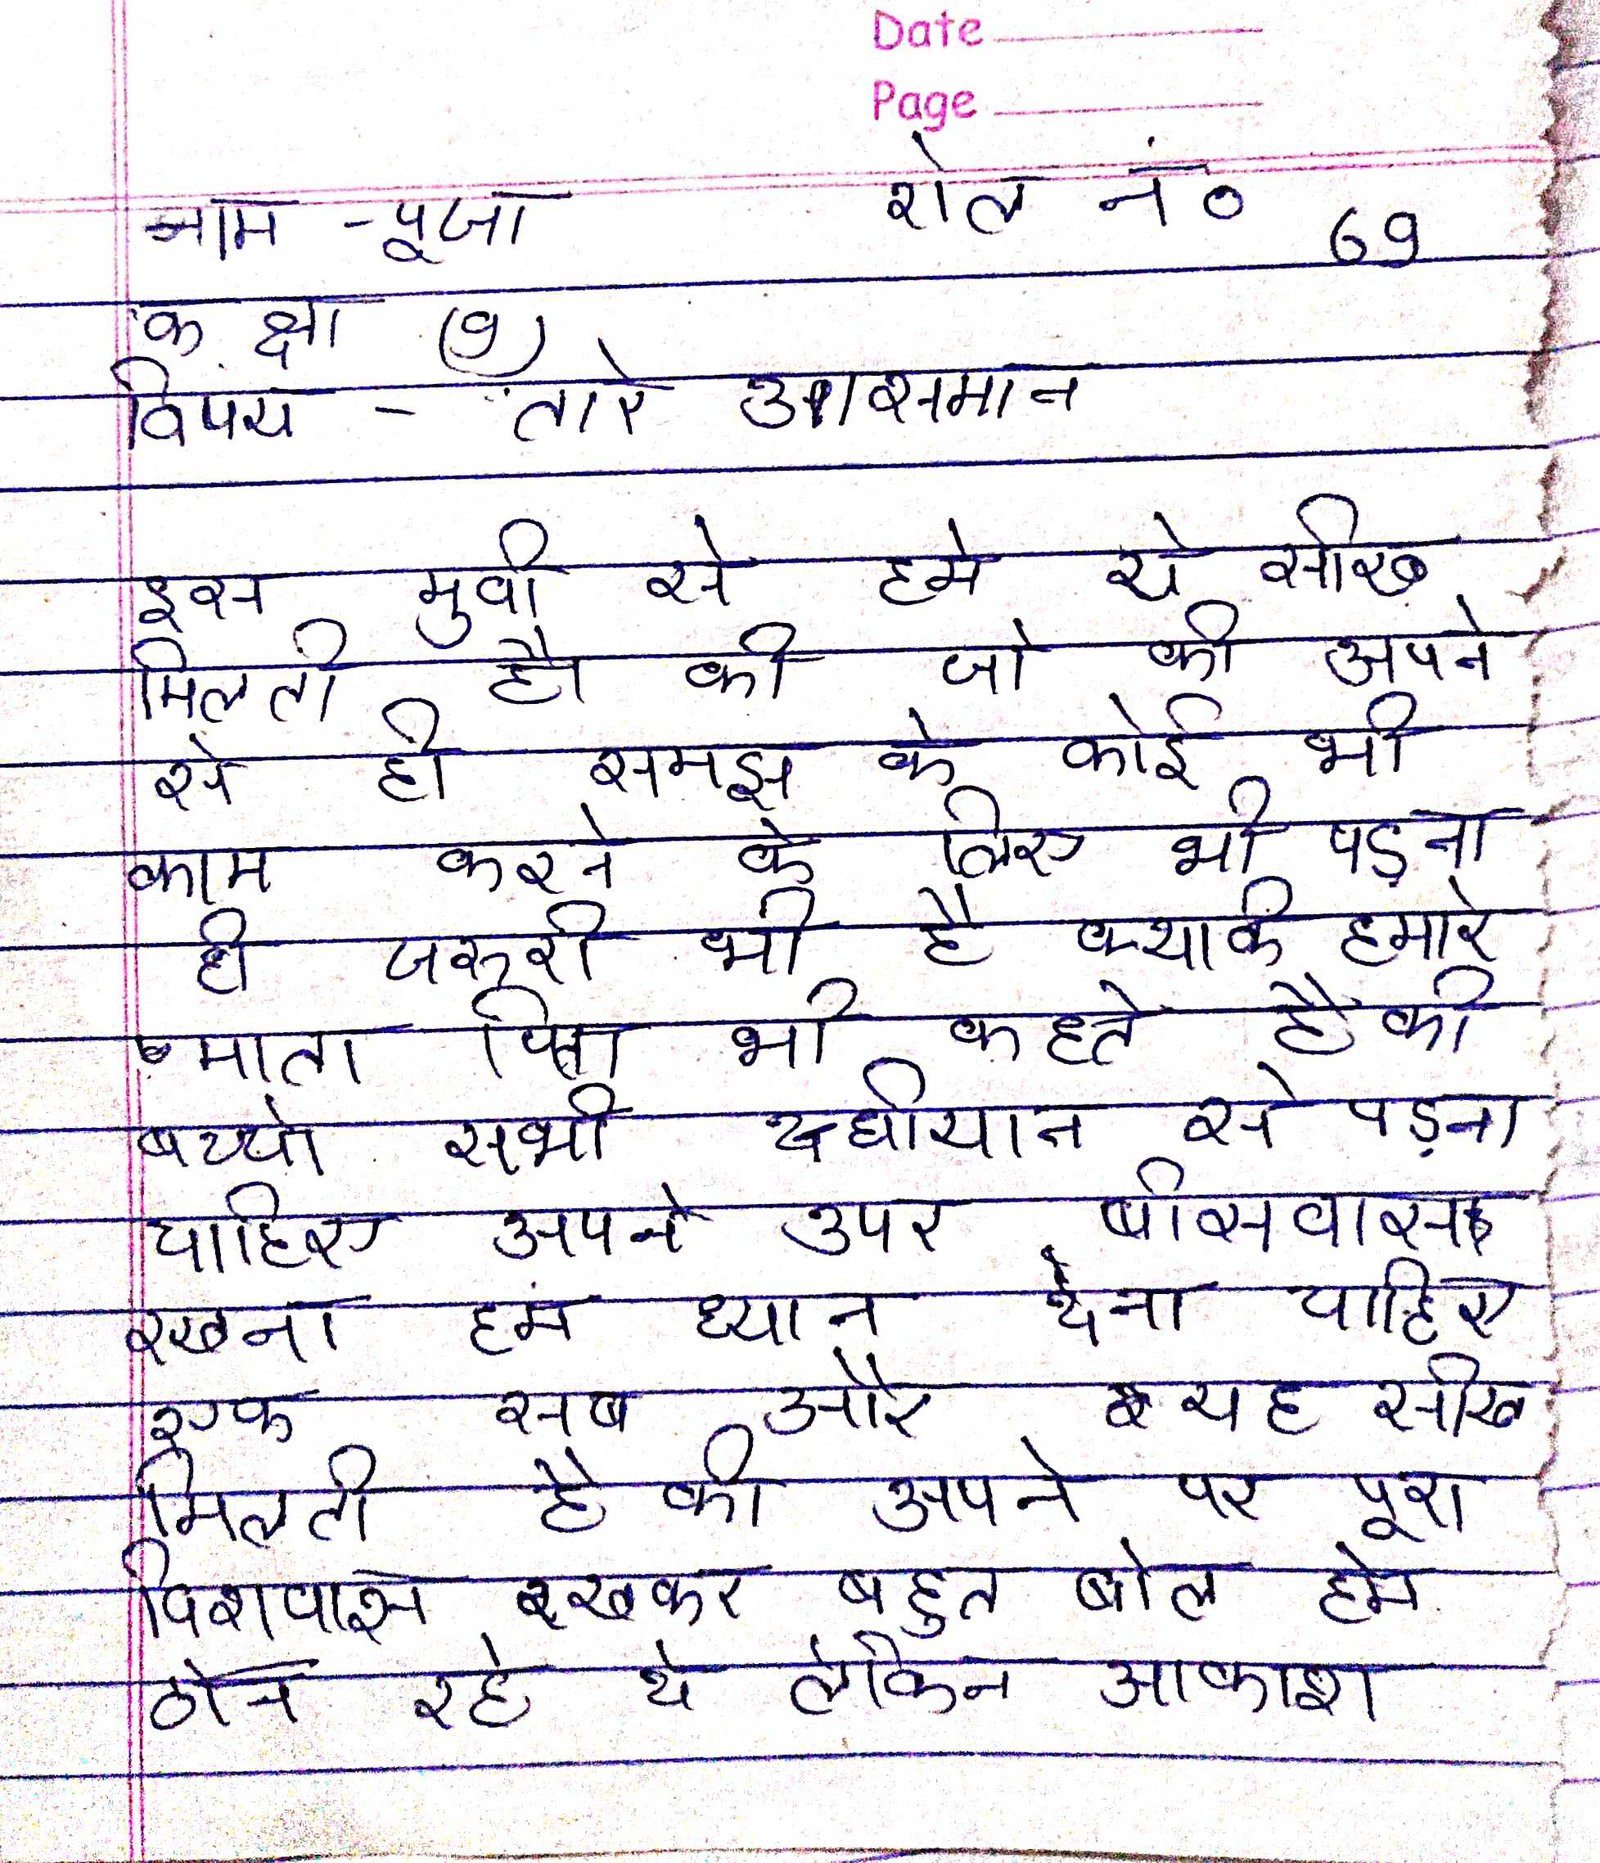 Date
Page
नाम - पूजा रोल नं० 69
कक्षा (9)
विषय - तारे आसमान
इस मुवी से हमे ये सीख
मिलती है की जो की अपने
से ही समझ के कोई भी
काम करने के लिए भी पड़ना
ही जरुरी भी है क्याकि हमारे
माता पिता भी कहते है की
बच्चो सभी ध्यान से पड़ना
चाहिए अपने उपर बीसवास
रखना हमं ध्यान देना चाहिए
एक सब और यह सीख
मिलती है की अपने पर पूरा
विशवास रखकर बहुत बोल हमे
रहे थे लेकिन आकाश